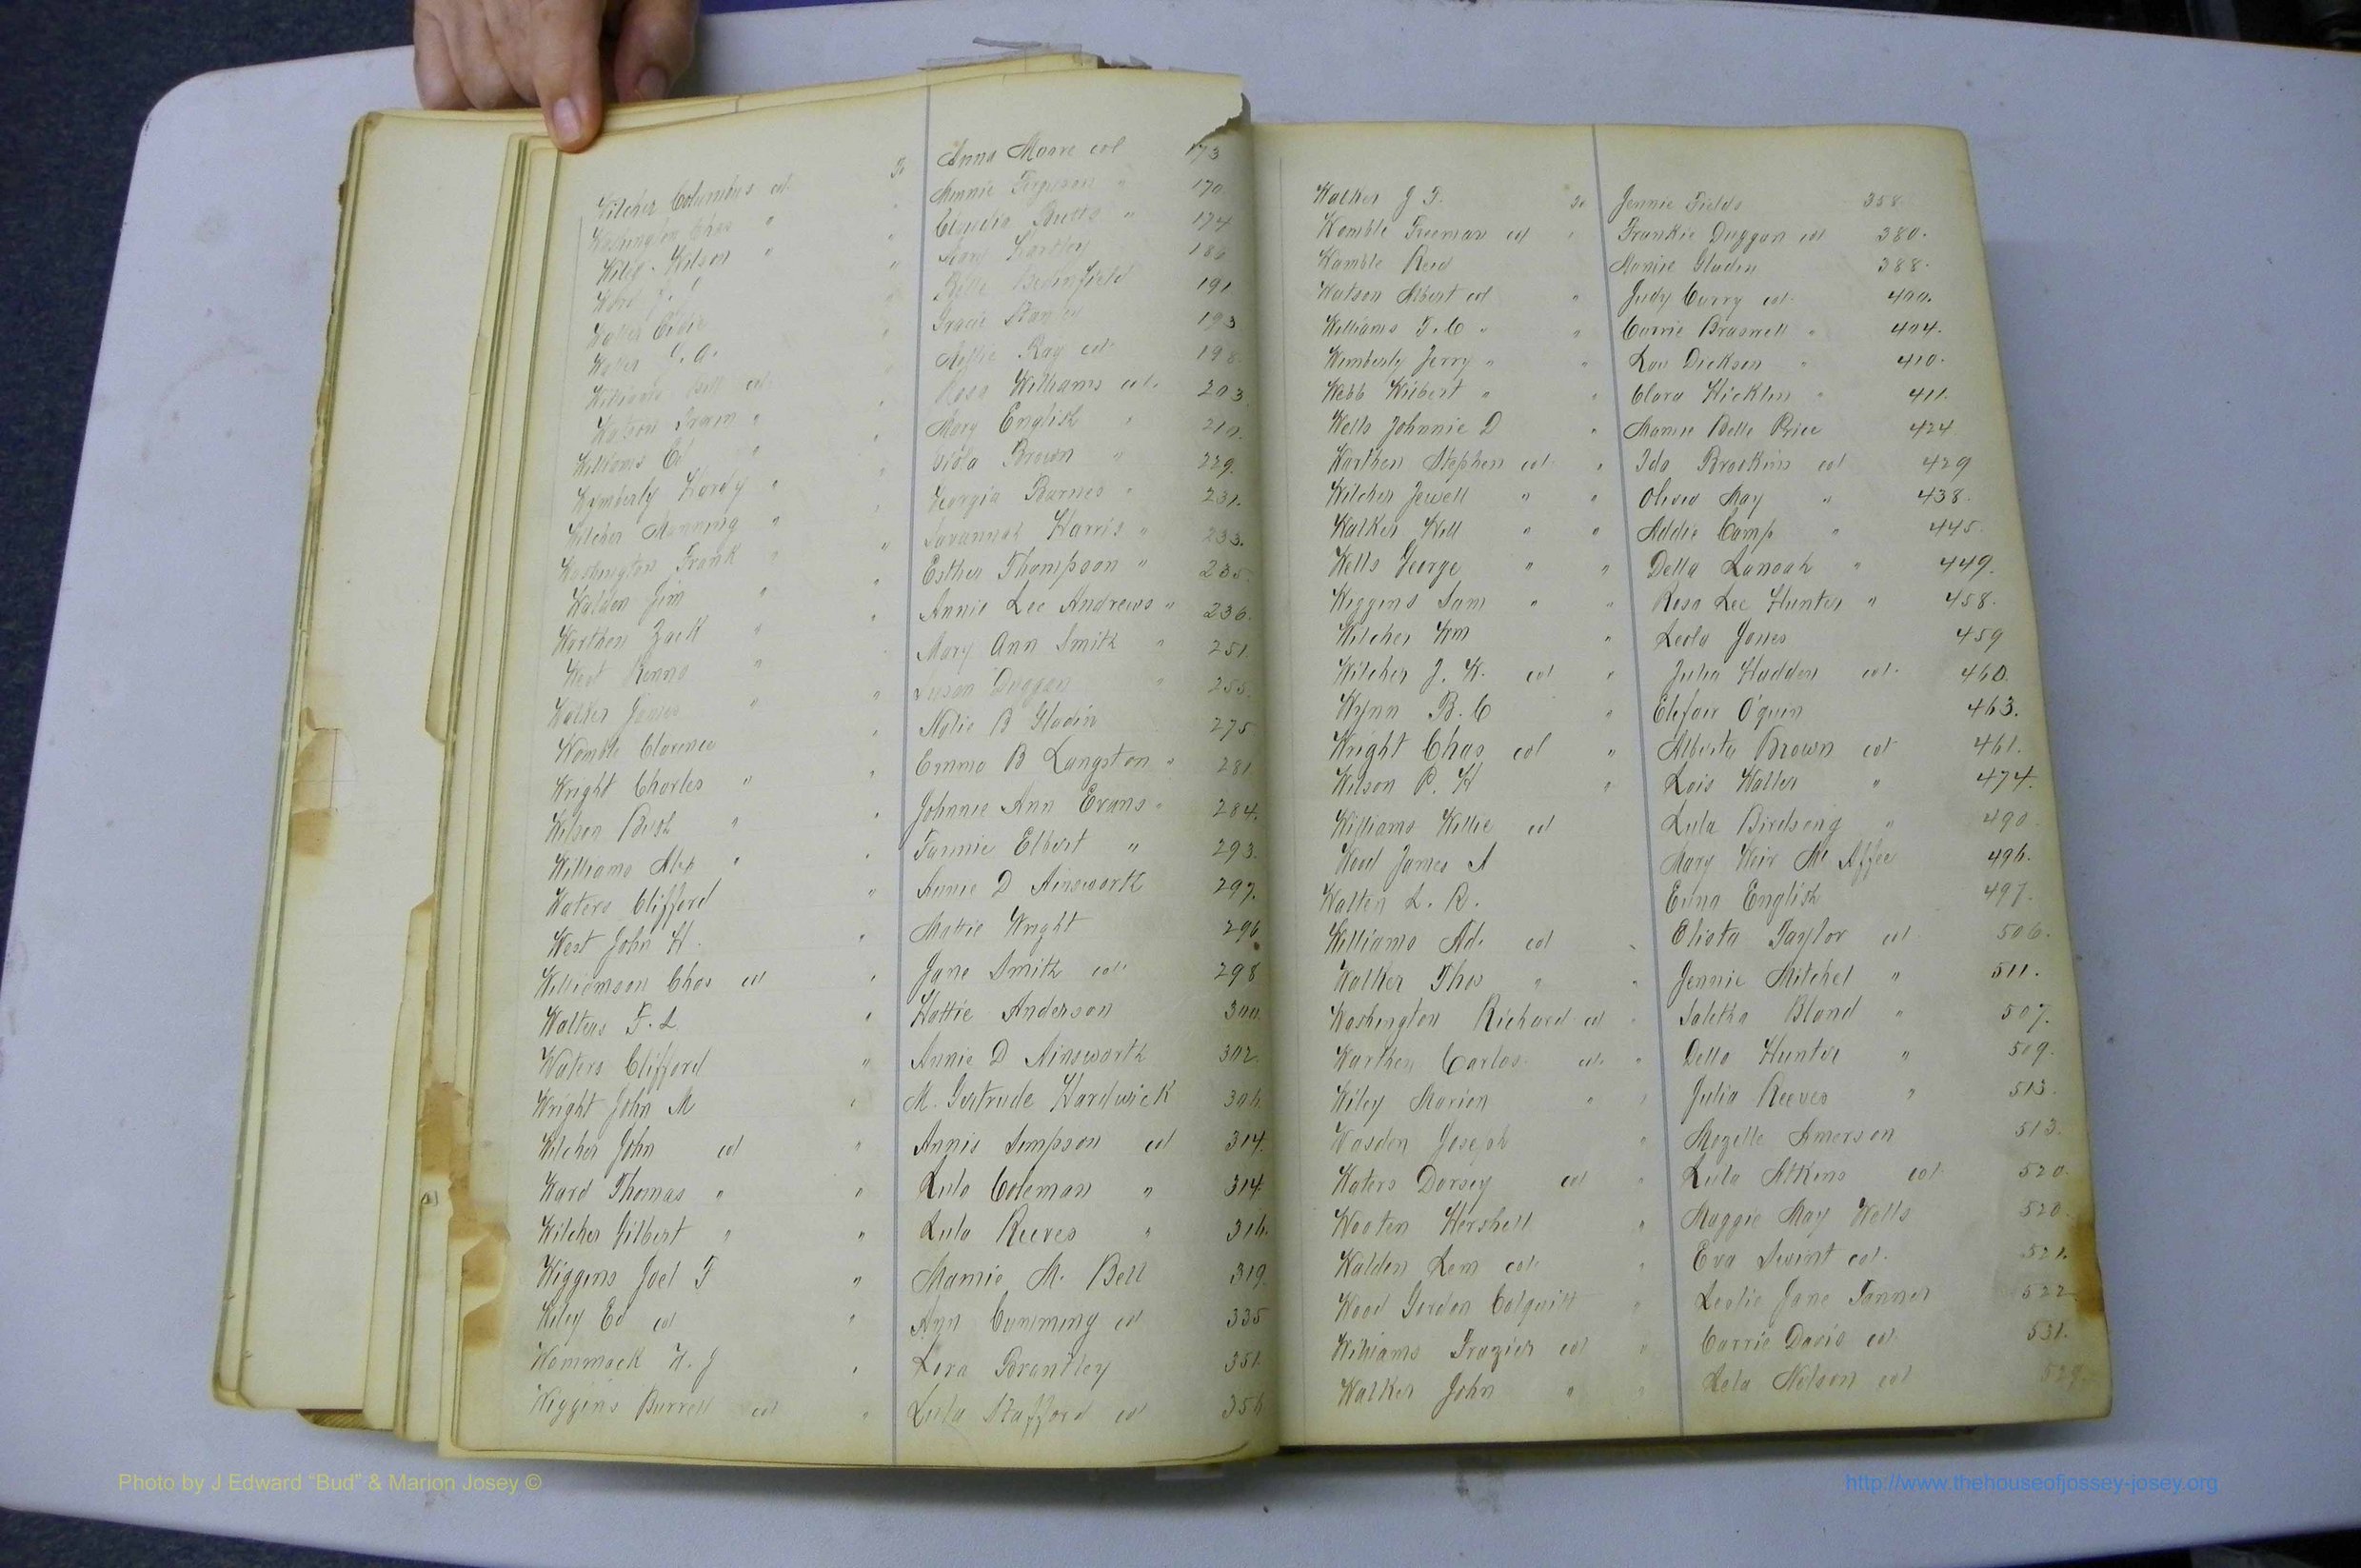 Wilcher Columbus col. To Anna Moore col 173
Washington Chas " " Minnie Ferguson " 170
Wiley Wilson " " Claudia Butts " 174
Ward " Mary Hartley
Waller Eddie " Belle 191
" Gracie 193
Williams Bell col. Mollie Ray col. 198
Watson " " Rosa Williams col. 203.
Williams Ed " " Mary English " 210.
Wymberly Hardy " Brown " 229.
Wilcher Manning " " Georgia Barnes " 231.
Washington Frank " " Savannah Harris " 233.
Walden Jim " " Esther Thompson " 235.
Warthen Zack " " Annie Lee Andrews " 236.
West " Mary Ann Smith " 251.
Walker James " " Susan Duggan " 255.
Womble Clarence " Nolie B Gladin 275
Wright Charles " " Emma B Langston " 281
Wilson Bush " " Johnnie Ann Evans " 284.
Williams Alex " " Fannie Elbert " 293.
Waters Clifford " Annie D Ainsworth 297.
West John H. " Mattie Wright 296
Williamson Chas col " Jane Smith col. 298
Walters F. L " Hattie Anderson 300.
Waters Clifford " Annie D Ainsworth 302.
Wright John M " M. Gertrude Hardwick 306.
Wilcher John col " Annie Simpson col 314.
Ward Thomas " " Lula Coleman " 314.
Wilcher Gilbert " " Lula Reeves " 316.
Wiggins Joel T " Mamie M. Bell 319.
Wiley Ed col " Ann Cumming col 335
Wommack W. J " Lera Brantley 351.
Wiggins Burrell col " Lula Stafford col 356
Walker J T. To Jennie Fields 358.
Womble Freeman col " Frankie Duggan col 380.
Wamble Reid Mamie Gladin 388.
Watson Albert col " Judy Curry col. 400.
Williams T. C " " Carrie Braswell " 404.
Wimberly Jerry " " Lou Dickson " 410.
Webb Wilbert " " Clara Hicklin " 411.
Wells Johnnie D " Mamie Belle Price 424
Warthen Stephen col. " Ida Brookins col 429
Wilcher Jewell " " Oliver May " 438.
Walker Will " " Addie Camp " 445.
Wells George " " Della Lanoah " 449.
Wiggins Sam " " Rosa Lee Hunter " 458.
Wilcher Wm " Leola Jones 459
Wilcher J. W. col " Julia Hadden col. 460.
Wynn B. C " Elefair O'quin 463.
Wright Chas col " Alberta Brown col 461.
Wilson P. H " Lois Waller " 474.
Williams Willie col Lula Birdsong " 490
Wood James A Mary Weir Mc Affee 496.
Walten L. R. Edna English 497.
Williams Ad. col " Elista Taylor col. 506.
Walker Thos " " Jennie Mitchel " 511.
Washington Richard col " Saletha Bland " 507.
Warthen Carlos. col. " Della Hunter " 509.
Wiley Marion " " Julia Reeves " 513.
Wasden Joseph " Mozelle Amerson 513.
Waters Dorsey col " Lula Atkins col. 520.
Wooten Hershell " Maggie May Wells 520.
Walden Lem col. " Eva Swint col. 521.
Wood Gordon Colquitt " Leslie Jane Tanner 522
Williams Frazier col " Carrie Davis col. 531.
Walker John " " Lela Nelson col 529.
Photo by J Edward “Bud” & Marion Josey ©
http://www.thehouseofjossey-josey.org